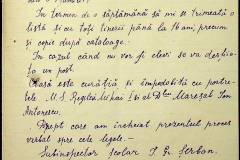 In termen de o săptămână să mi se trimeată o
listă și cu toți tinerii până la 16 ani, precum
și copie după cataloage.
In cazul când nu vor fi elevi se va desființa
un post.
Clasa este curățică și împodobită cu portre-
tele M. S. Regelui Mihai I și al Dlui Mareșal Ion
Antonescu.
Drept care am încheiat prezentul proces
verbal spre cele legale.—
Subinspector școlar